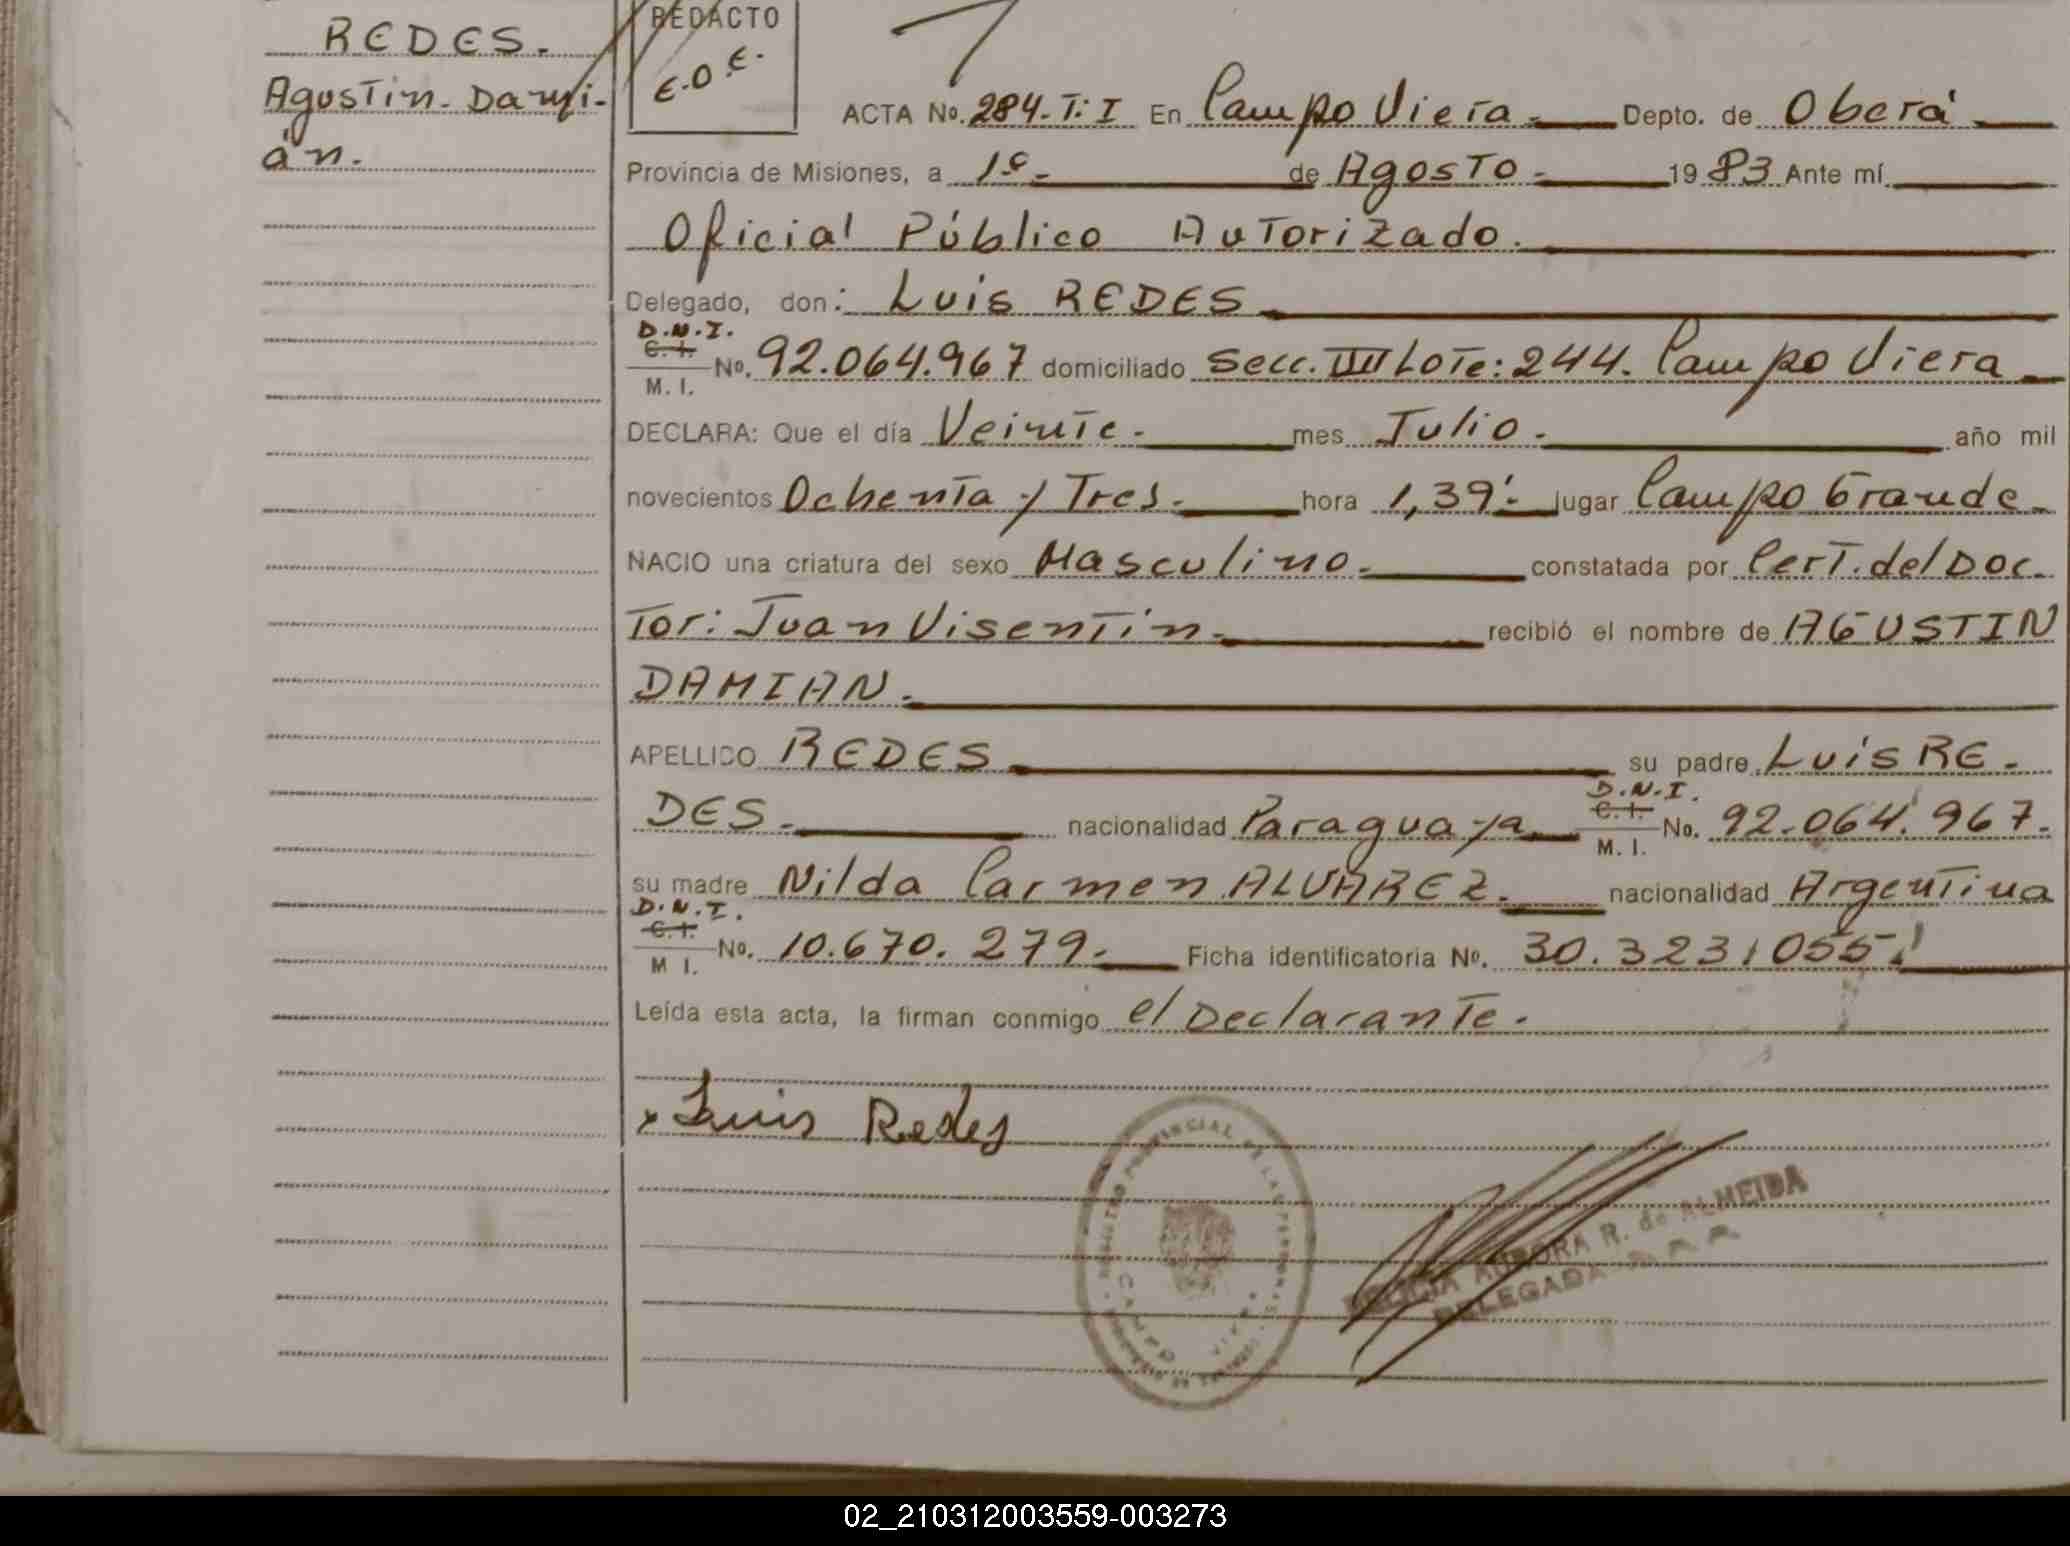 REDES.
Agustin. Dami-
án.
REDACTO
E.O.E.
ACTA No. 284.T:I En Campo Viera. Depto. de Oberá
Provincia de Misiones, a 1º de Agosto 1983 Ante mí
Oficial Público Autorizado.
Delegado, don: Luis REDES
D.N.I.
C. I.
M. I. No. 92.064.967 domiciliado Secc. III Lote: 244. Campo Viera
DECLARA: Que el día Veinte. mes Julio. año mil
novecientos Ochenta y Tres. hora 1,39' lugar Campo Grande
NACIO una criatura del sexo Masculino. constatada por Cert. del Doc
Tor: Juan Visentin. recibió el nombre de AGUSTIN
DAMIAN.
APELLIDO REDES su padre Luis RE.
DES. nacionalidad Paraguaya D.N.I. C. I. M. I. No. 92.064.967.
su madre Nilda Carmen ALVAREZ. nacionalidad Argentina
D.N.I.
C. I.
M I. No. 10.670.279. Ficha identificatoria No. 30.323.055
Leída esta acta, la firman conmigo el Declarante.
x Luis Redes
REGISTRO PROVINCIAL DE LAS PERSONAS
CAMPO VIERA
AURORA R. de ALMEIDA
DELEGADA
02_210312003559-003273